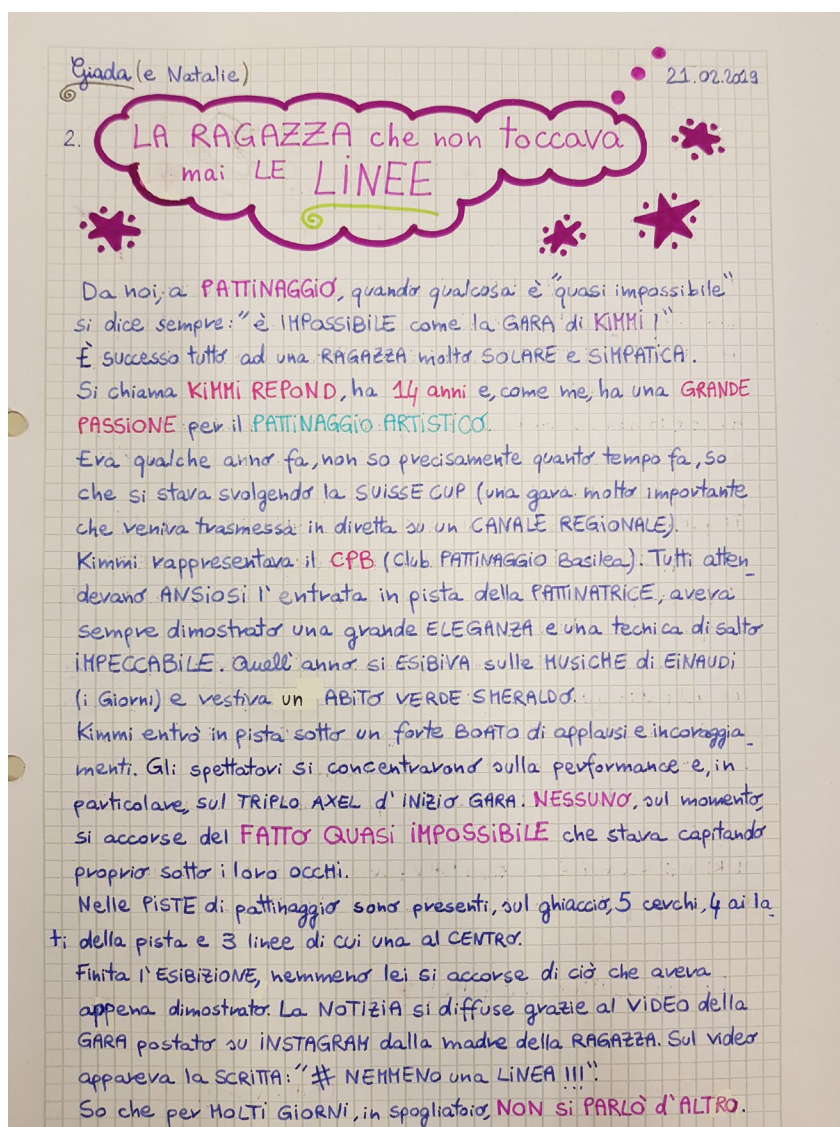 Giada (e Natalie)
21.02.2019
2. LA RAGAZZA che non toccava
mai LE LINEE
Da noi, a PATTINAGGIO, quando qualcosa è "quasi impossibile"
si dice sempre: "è IMPOSSIBILE come la GARA di KIMMI!"
È successo tutto ad una RAGAZZA molto SOLARE e SIMPATICA.
Si chiama KIMMI REPOND, ha 14 anni e, come me, ha una GRANDE
PASSIONE per il PATTINAGGIO ARTISTICO.
Era qualche anno fa, non so precisamente quanto tempo fa, so
che si stava svolgendo la SUISSE CUP (una gara molto importante
che veniva trasmessa in diretta su un CANALE REGIONALE).
Kimmi rappresentava il CPB (Club PATTINAGGIO Basilea). Tutti atten_
devano ANSIOSI l'entrata in pista della PATTINATRICE, aveva
sempre dimostrato una grande ELEGANZA e una tecnica di salto
IMPECCABILE. Quell'anno si ESIBIVA sulle MUSICHE di EINAUDI
(i Giorni) e vestiva un ABITO VERDE SMERALDO.
Kimmi entrò in pista sotto un forte BOATO di applausi e incoraggia_
menti. Gli spettatori si concentrarono sulla performance e, in
particolare, sul TRIPLO AXEL d'INIZIO GARA. NESSUNO, sul momento,
si accorse del FATTO QUASI IMPOSSIBILE che stava capitando
proprio sotto i loro occHi.
Nelle PISTE di pattinaggio sono presenti, sul ghiaccio, 5 cerchi, 4 ai la_
ti della pista e 3 linee di cui una al CENTRO.
Finita l'ESIBIZIONE, nemmeno lei si accorse di ciò che aveva
appena dimostrato. La NOTIZIA si diffuse grazie al VIDEO della
GARA postato su INSTAGRAM dalla madre della RAGAZZA. Sul video
appareva la SCRITTA: "# NEMMENO una LINEA !!!".
So che per MOLTI GIORNI, in spogliatoio, NON SI PARLÒ d'ALTRO.